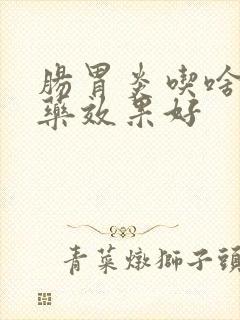 腸胃炎喫啥
藥效果好
青菜燉獅子頭